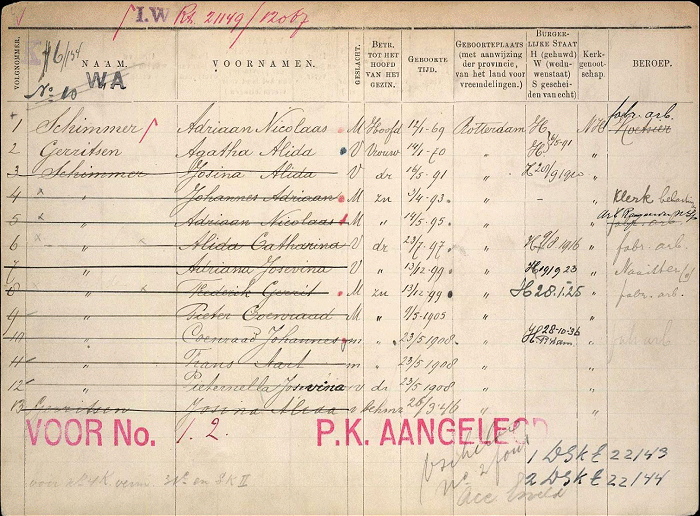 I.W Rt. 2149/120bf
VOLGNOMMER. NAAM. VOORNAMEN. GESLACHT. BETR. TOT HET HOOFD VAN HET GEZIN. GEBOORTE TIJD. GEBOORTEPLAATS (met aanwijzing der provincie, van het land voor vreemdelingen.) BURGERLIJKE STAAT H (gehuwd) W (weduwenstaat) S gescheiden van echt) Kerkgenootschap. BEROEP.
No 10 WA
1 Schimmer Adriaan Nicolaas M Hoofd 12/1-69 Rotterdam H. NH fabr. arb.
2 Gerritsen Agatha Alida V Vrouw 14/1-70 " H. "
3 Schimmer Josina Alida V dr 16/5-91 " H 20/9 1920 "
4 " Johannes Adriaan M zn 3/4-93 " - " Klerk
5 " Adriaan Nicolaas M " 14/5-95 " "
6 " Alida Catharina V dr 23/7-97 " H 9/8-1916 " fabr. arb.
7 " Adriana Josevina V " 13/12-99 " H 1919 23 "
8 " Frederik Gerrit M zn 13/12-99 " H 28.1.25 " fabr. arb.
9 " Pieter Coenraad M " 9/5-1905 " "
10 " Coenraad Johannes m " 23/5 1908 " H 28-10-36 R'dam " fab arb
11 " Frans Aart m " 23/5 1908 "
12 " Pieternella Josevina v dr 23/5 1908 "
13 Gerritsen Josina Alida v "
VOOR No. 1. 2. P.K. AANGELEGD
1 DSKE 22143
2 DSKE 22144